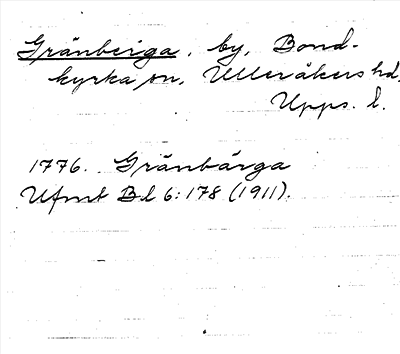 Gränberga, by, Bond-
kyrka sn, Ulleråkers hd,
Upps. l.
1776. Gränbärga
Ufmt Bd 6:178 (1911).